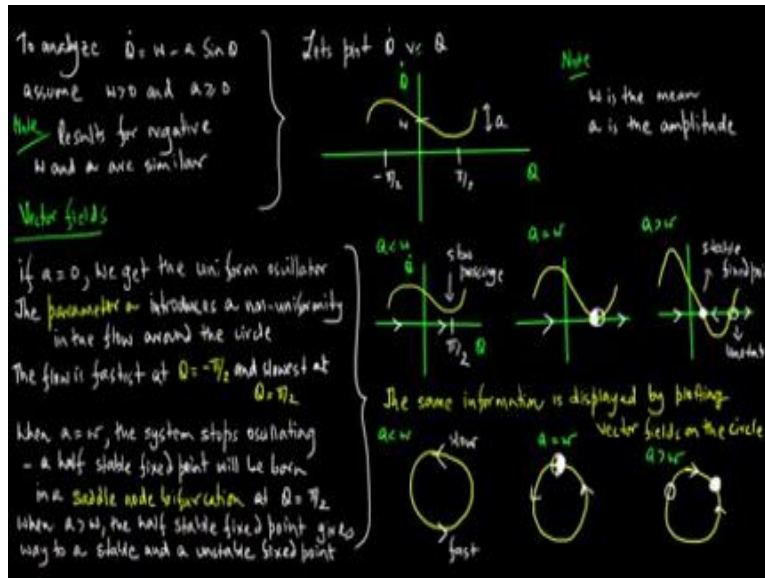 To analyze Q̇ = w - a Sin Q
assume w>0 and a≥0
Note Results for negative
w and a are similar
Lets plot Q̇ vs Q
Q̇
w
a
-π/2
π/2
Q
Note
w is the mean
a is the amplitude
Vector fields
if a=0, we get the uniform oscillator
The parameter a introduces a non-uniformity
in the flow around the circle
The flow is fastest at Q=-π/2 and slowest at
Q=π/2
When a=w, the system stops oscillating
- a half stable fixed point will be born
in a saddle node bifurcation at Q=π/2
When a>w, the half stable fixed point gives
way to a stable and a unstable fixed point
a<w
Q̇
slow
passage
π/2
Q
a=w
a>w
stable
fixed poi
unstab
The same information is displayed by plotting
vector fields on the circle
a<w
slow
fast
a=w
a>w